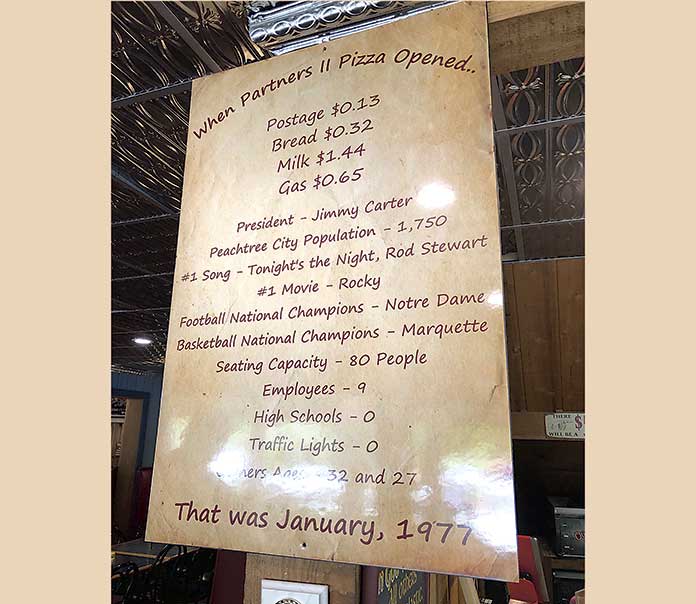 When Partners II Pizza Opened..
Postage $0.13
Bread $0.32
Milk $1.44
Gas $0.65
President - Jimmy Carter
Peachtree City Population - 1,750
#1 Song - Tonight's the Night, Rod Stewart
#1 Movie - Rocky
Football National Champions - Notre Dame
Basketball National Champions - Marquette
Seating Capacity - 80 People
Employees - 9
High Schools - 0
Traffic Lights - 0
32 and 27
That was January, 1977
THERE
WILL BE A
All others